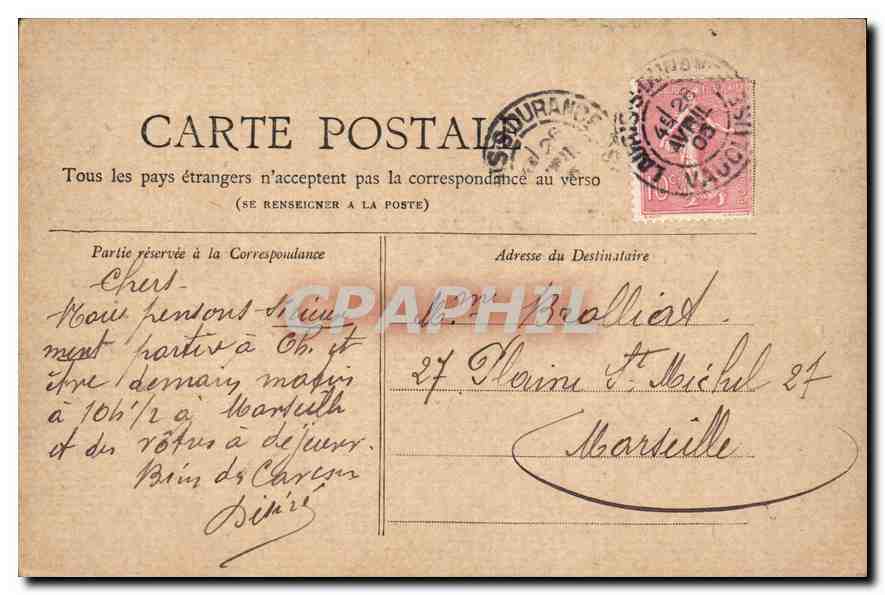 CARTE POSTALE
Tous les pays étrangers n'acceptent pas la correspondance au verso
(SE RENSEIGNER A LA POSTE)
S-S-DURANCE
26
LAURIS-S-DURANCE
4E/ 26
AVRIL
05
VAUCLUSE
10
Partie réservée à la Correspondance
Chers
Nous pensons sérieu
ment partir à Ch. et
être demain matin
à 10h 1/2 à Marseille
et des vôtres à déjeuner.
Bien des Caresses
Désiré
Adresse du Destinataire
Mme Bralliat
27 Plaine St. Michel 27
Marseille
CPAPHIL